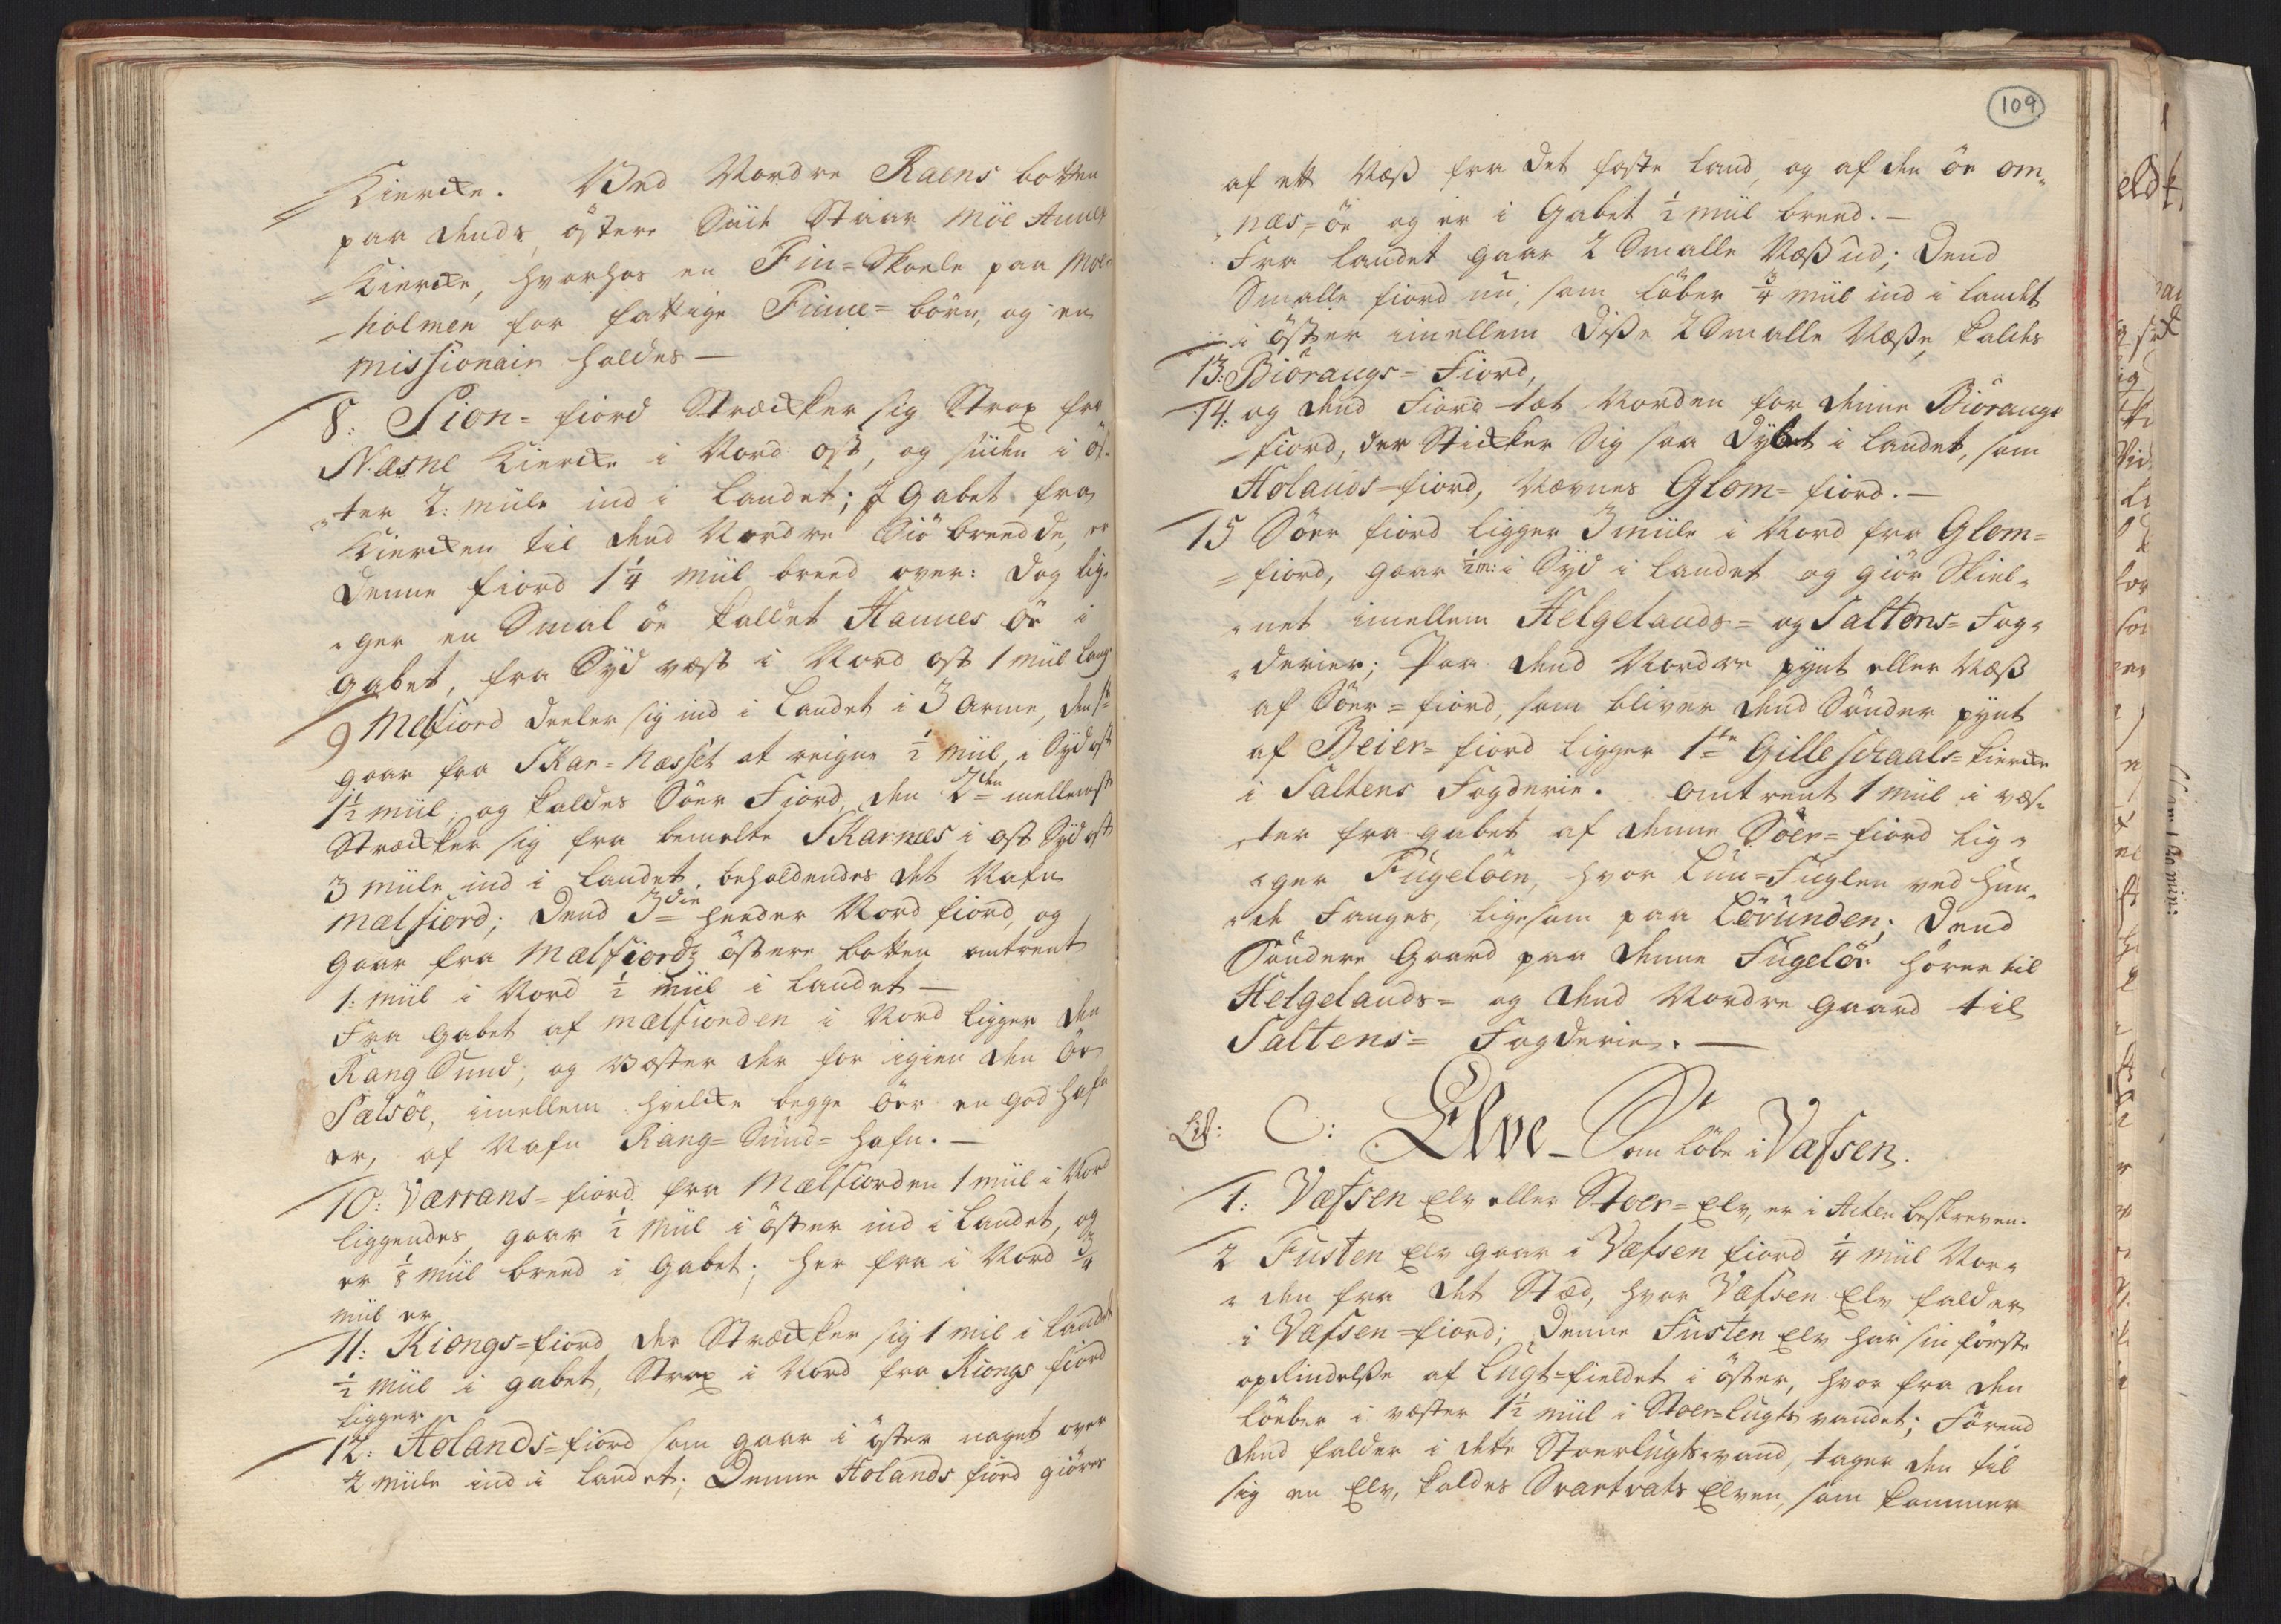 Kiercke. Ved Nordre Raens botten
paa dends östere Siide Staar Möe Annex
Kiercke, hvorhos en Fin-Skoele paa Moe-
holmen for fattige Finne-börn, og en
missionair holdes —
8: Sion-fiord Stræcker sig Strax fra
Næsne Kiercke i Nord ost, og siiden i ös-
ter 2: miile ind i Landet; I Gabet fra
Kiercken til dend Nordre Siö breedde, er
denne fiord 1 1/4 miil breed over: dog lig-
ger en Smal öe kaldet Hannes öe i
gabet, fra Syd vest i Nord ost 1 miil lang
9 Melfiord deeler sig ind i Landet i 3 arme, den 1te
gaar fra Skar-Næsset at reigne 1/2 miil, i Sydost
1 1/2 miil, og kaldes Söer Fiord, den 2den mellemste
Stræcker sig fra bemelte Skarnæs i ost Sydost
3 miile ind i Landet, beholdendes det Nafn
Mælfiord; Dend 3die heeder Nord fiord, og
gaar fra Mælfiords östere botten omtrent
1: miil i Nord 1/2 miil i Landet —
Fra Gabet af Mælfiorden i Nord ligger den
Rang Sund, og Væster der for igien den öe
Sælsöe, imellem hvilcke begge öer en god hafn
er, af Nafn Rang-Sund-hafn. —
10: Værrans-fiord fra Mælfiorden 1 miil i Nord
liggendes gaar 1/2 miil i öster ind i Landet, og
er 1/8 miil breed i Gabet; her fra i Nord 3/4
miil er
11: Kiongs-fiord der Stræcker sig 1 mil i Landet
1/2 miil i gabet, Strax i Nord fra Kiongs fiord
ligger
12: Holands-fiord som gaar i öster noget over
2 miile ind i Landet; Denne Holands fiord giöres
109
af ett Næss fra det faste Land, og af den öe om-
næs-öe og er i Gabet 1/2 miil breed. —
Fra Landet gaar 2 Smalle Næss ud; Dend
Smalle fiord nu, som löber 3/4 miil ind i Landet
i öster imellem disse 2 Smalle Næsse, kaldes
13: Biörangs-Fiord,
14: og dend Fiord tæt Norden for denne Biörangs
fiord, der Sticker Sig saa dybet i Landet, som
Holands-fiord, Nævnes Glom-fiord. —
15 Söer fiord ligger 3 miile i Nord fra Glom-
fiord, gaar 1/2 m: i Syd i Landet og giör Skiel-
net imellem Helgelands- og Saltens-Fog-
derier; Paa dend Nordre pynt eller Næss
af Söer-fiord, som bliver dend Sönder pynt
af Beier-fiord ligger 1te Gilleschaals-kiercke
i Saltens Fogderie. omtrent 1 miil i væs-
ter fra gabet af denne Söer-fiord lig-
ger Fugelöen, hvor Lun-Fuglen ved hun-
de Fanges, ligesom paa Lovunden; Dend
Söndere Gaard paa denne Fugelöe hörer til
Helgelands- og dend Nordre gaard til
Saltens-Fogderie. —
Lit: C: Elve Som löbe i Vafsen.
1: Væfsen Elv eller Stoer-Elv, er i Acten beskreven.
2 Fusten Elv gaar i Væfsen fiord 1/4 miil Nor-
den fra det Stæd, hvor Væfsen Elv falder
i Væfsen-fiord; Denne Fusten Elv har sin förste
oprindelsse af Lugt-fieldet i öster, hvor fra den
löeber i væster 1 1/2 miil i Stoer-Lugts vandet; Förend
dend falder i dette Stoerlugts-vand, tager den til
sig en Elv, kaldes Svartvats Elven, som kommer